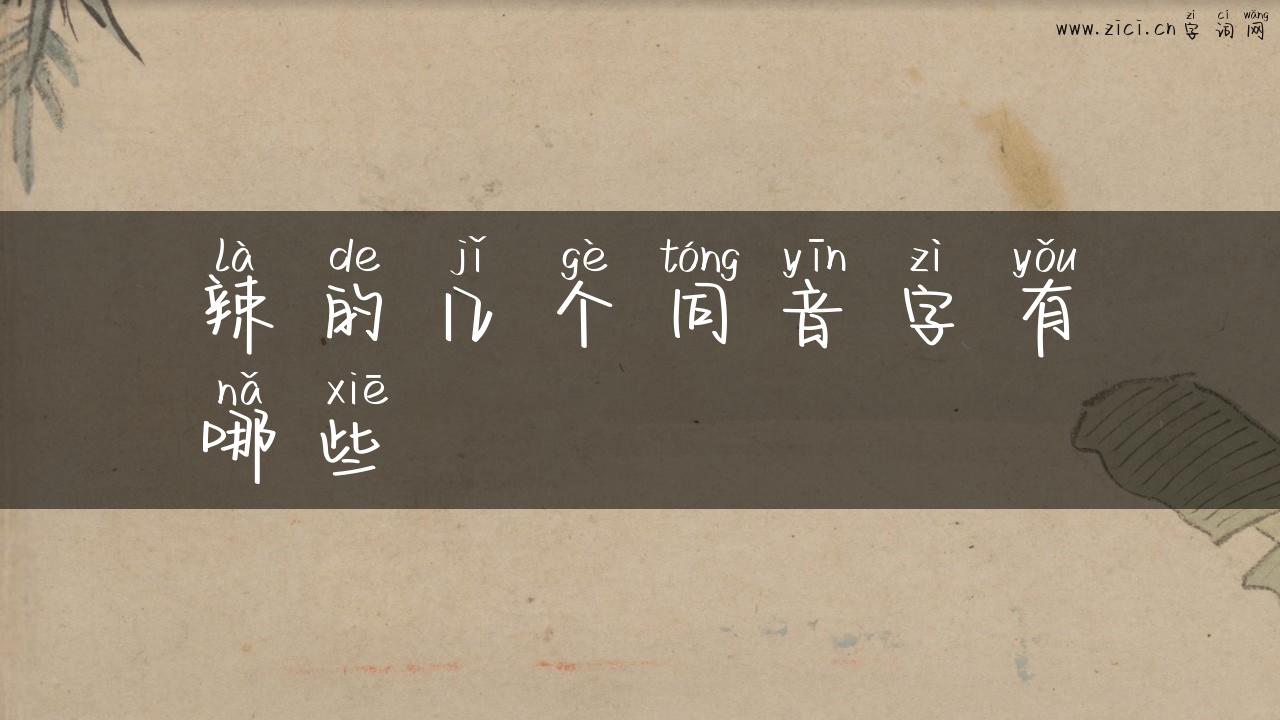 zì cí wǎng
www.zici.cn 字词网
là de jǐ gè tóng yīn zì yǒu
辣的几个同音字有
nǎ xiē
哪些